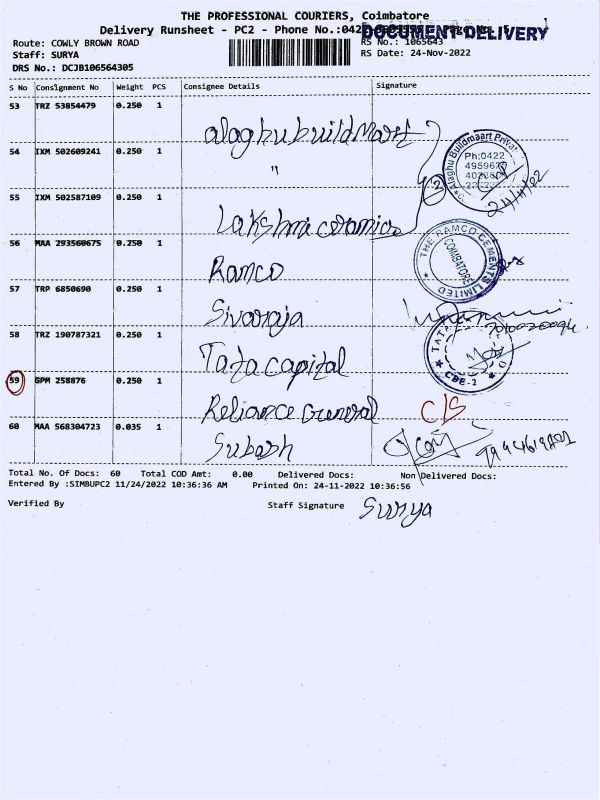 THE PROFESSIONAL COURIERS, Coimbatore
Delivery Runsheet - PC2 - Phone No.:042
DOCUMENT DELIVERY
Route: COWLY BROWN ROAD
RS No.: 1065643
Staff: SURYA
RS Date: 24-Nov-2022
DRS No.: DCJB106564305
S No Consignment No Weight PCS Consignee Details Signature
53 TRZ 53854479 0.250 1
alaghubuildMart
54 IXM 502609241 0.250 1
"
55 IXM 502587109 0.250 1
Lakshmi ceramics
2
Alaghu Buildmaart Privat
Ph:0422
24/11/22
56 MAA 293560675 0.250 1
Ramco
THE RAMCO CEMENTS LIMITED
COIMBATORE
57 TRP 6850690 0.250 1
Sivaraja
58 TRZ 190787321 0.250 1
Tata capital
TATA
CBE-2
59 GPM 258876 0.250 1
Reliance General C/S
60 MAA 568304723 0.035 1
Subash
Total No. Of Docs: 60 Total COD Amt: 0.00 Delivered Docs: Non Delivered Docs:
Entered By :SIMBUPC2 11/24/2022 10:36:36 AM Printed On: 24-11-2022 10:36:56
Verified By Staff Signature Surya